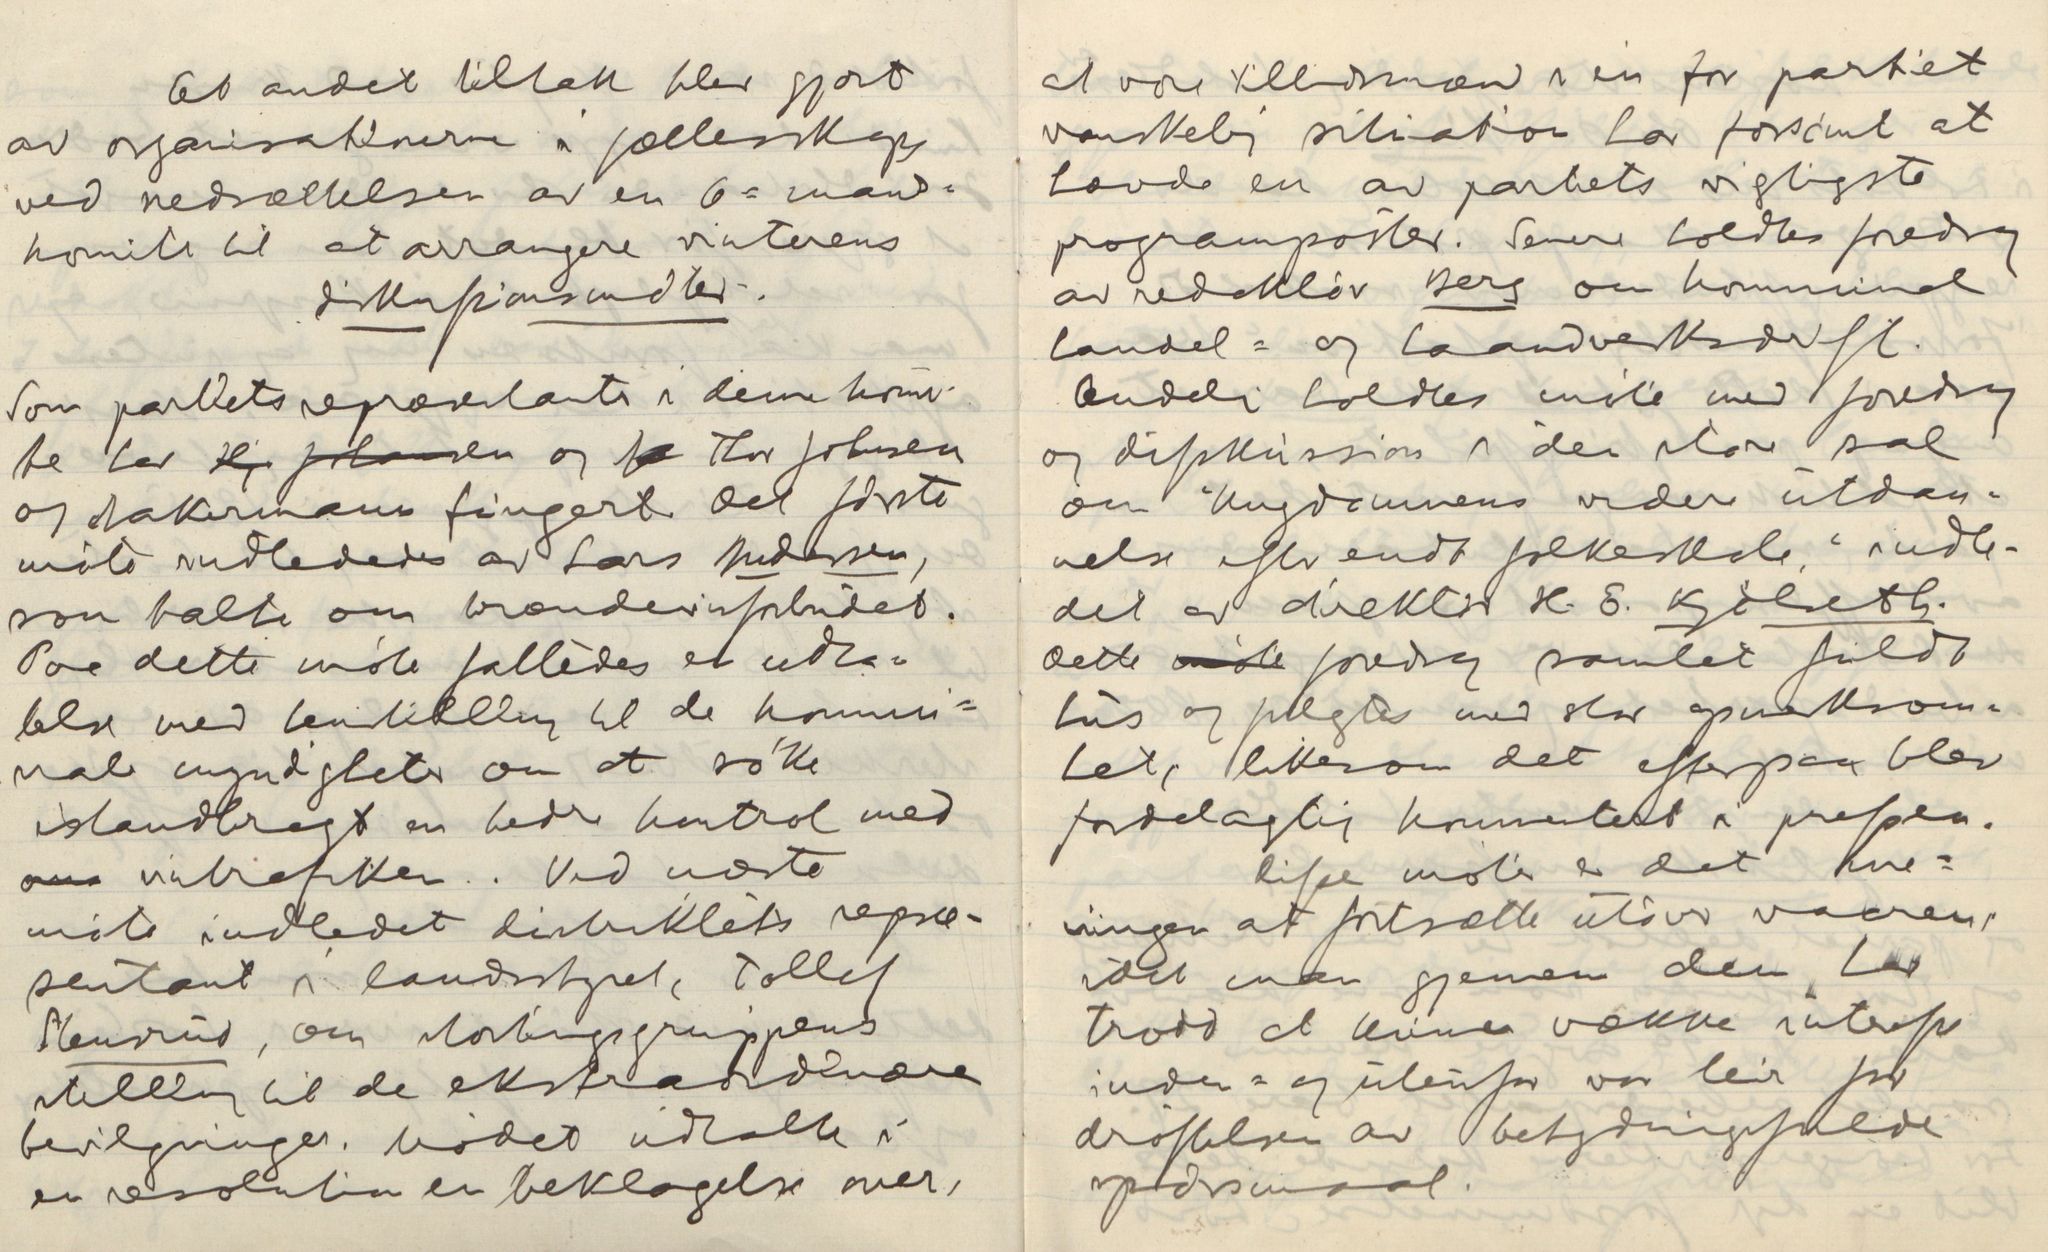 Et andet tiltak blev gjort
av organisationerne i fællesskap
ved nedsættelsen av en 6-mands-
komite til at arrangere vinterens
diskusjonsmöter.
Som partiets repræsentanter i denne komi-
te har og Thor Johnsen
og Makermann fungert. Det förste
möte indlededes av Lars Andersen,
som talte om brænderinforbudet.
Paa dette möte fattedes en udta-
telse med henstilling til de kommu-
nale myndigheter om at söke
istandbragt en bedre kontrol med
vintrafiken. Ved næste
möte indledet distriktets repræ-
sentant i landsstyret, Tollef
Stensrud, om stortingsgruppens
stilling til de ekstraordinære
bevilgninger. Mödet uttalte i
en resolution en beklagelse over,
at vore tillidsmænd i en for partiet
vanskelig situation har forsömt at
hævde en av partiets vigtigste
programposter. Senere holdtes foredrag
av redaktör Berg om kommunal
handel- og haandverksdrift.
Endelig holdtes möte med foredrag
og diskussion i den store sal
om "Ungdommens videre utdan-
nelse efter endt folkeskole," indle-
det av direktör H. E. Kjölseth.
Dette foredrag samlet fuldt
hus og fulgtes med stor opmerksom-
het, likesom det efterpaa blev
fordelagtig kommentert i pressen.
Disse möter er det me-
ningen at fortsætte utöver vaaren,
idet man gjennem dem har
trodd at kunne vække interesse
inden- og utenfor vor leir for
dröftelsen av betydningsfulde
spörsmaal.